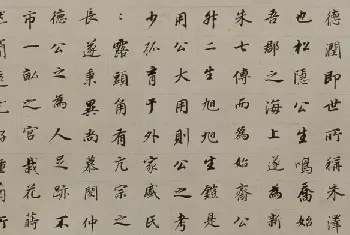 德潤即世所稱朱澤
也松隱公生鳴喬始
吾郡之海上遂為新
朱二七傳而為始齋公
舛二生旭旭生鎧是公
用公大用則公之考
少孤育于外家戚氏
露頭角有亢宗之
長遂秉異尚慕閔仲
德公之為人足跡不
市一畝之宮栽花蒔